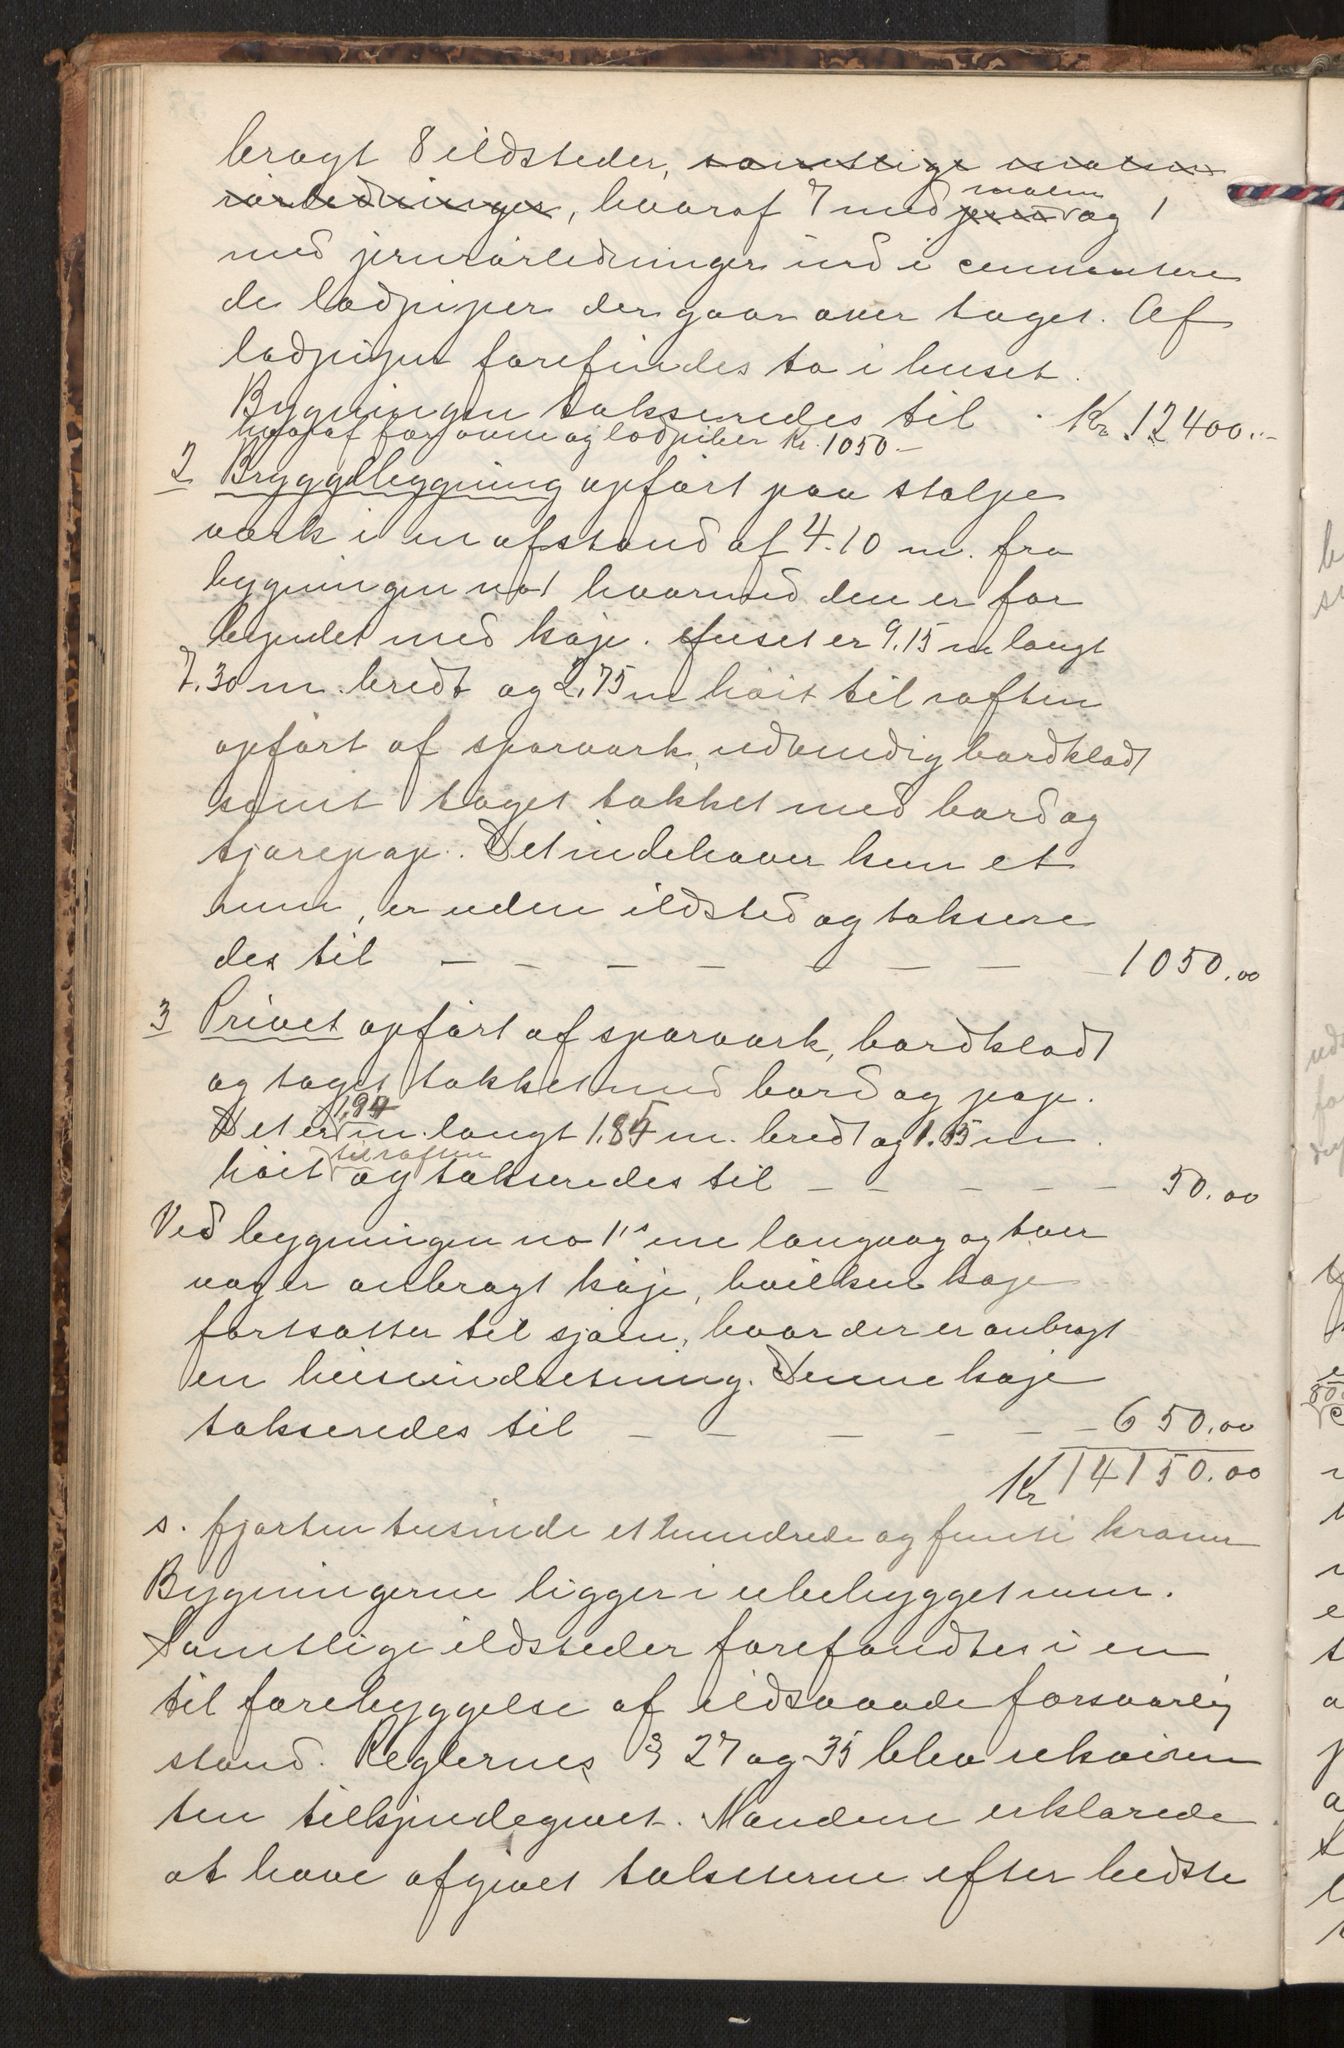 bragt 8 ildsteder, samtlige uden
rørledninger, hvoraf 7 med jern uden og 1
med jernrørledninger ind i cementere
de lodpiper der gaar over taget. Af
lodpiper forefindes to i huset.
Bygningen takseredes til . Kr 12400.-
hvoraf for ovne og lodpiber Kr. 1050.-
2 Bryggebygning opført paa stolpe
værk i en afstand af 4.10 m. fra
bygningen no 1 hvormed den er for
bundet med kaje. Huset er 9.15 m langt
7.30 m. bredt og 2.75 m høit til raften
opført af sparværk, udvendig bordklædt
samt taget tækket med bord og
tjærepap. Det indehaver kun et
rum, er uden ildsted og taksere
des til — — — — — — — — 1050.00
3 Privet opført af sparværk, bordklædt
og taget tækket med bord og pap.
Det er 1,94 m. langt 1.85 m. bredt og 1.85 m
høit til raften og takseredes til — — — — — 50.00
Ved bygningen no 1's ene langvæg og tver
væg er anbragt kaje, hvilken kaje
fortsætter til sjøen, hvor der er anbragt
en heiseindretning. Denne kaje
takseredes til — — — — — — 650.00
Kr 14150.00
s. fjorten tusinde et hundrede og femti kroner
Bygningerne ligger i ubebygget rum.
Samtlige ildsteder forefandtes i en
til forebyggelse af ildsvaade forsvarlig
stand. Reglernes § 27 og 35 blev rekviren
ten tilkjendegivet. Mændene erklærede
at have afgivet taksterne efter bedste